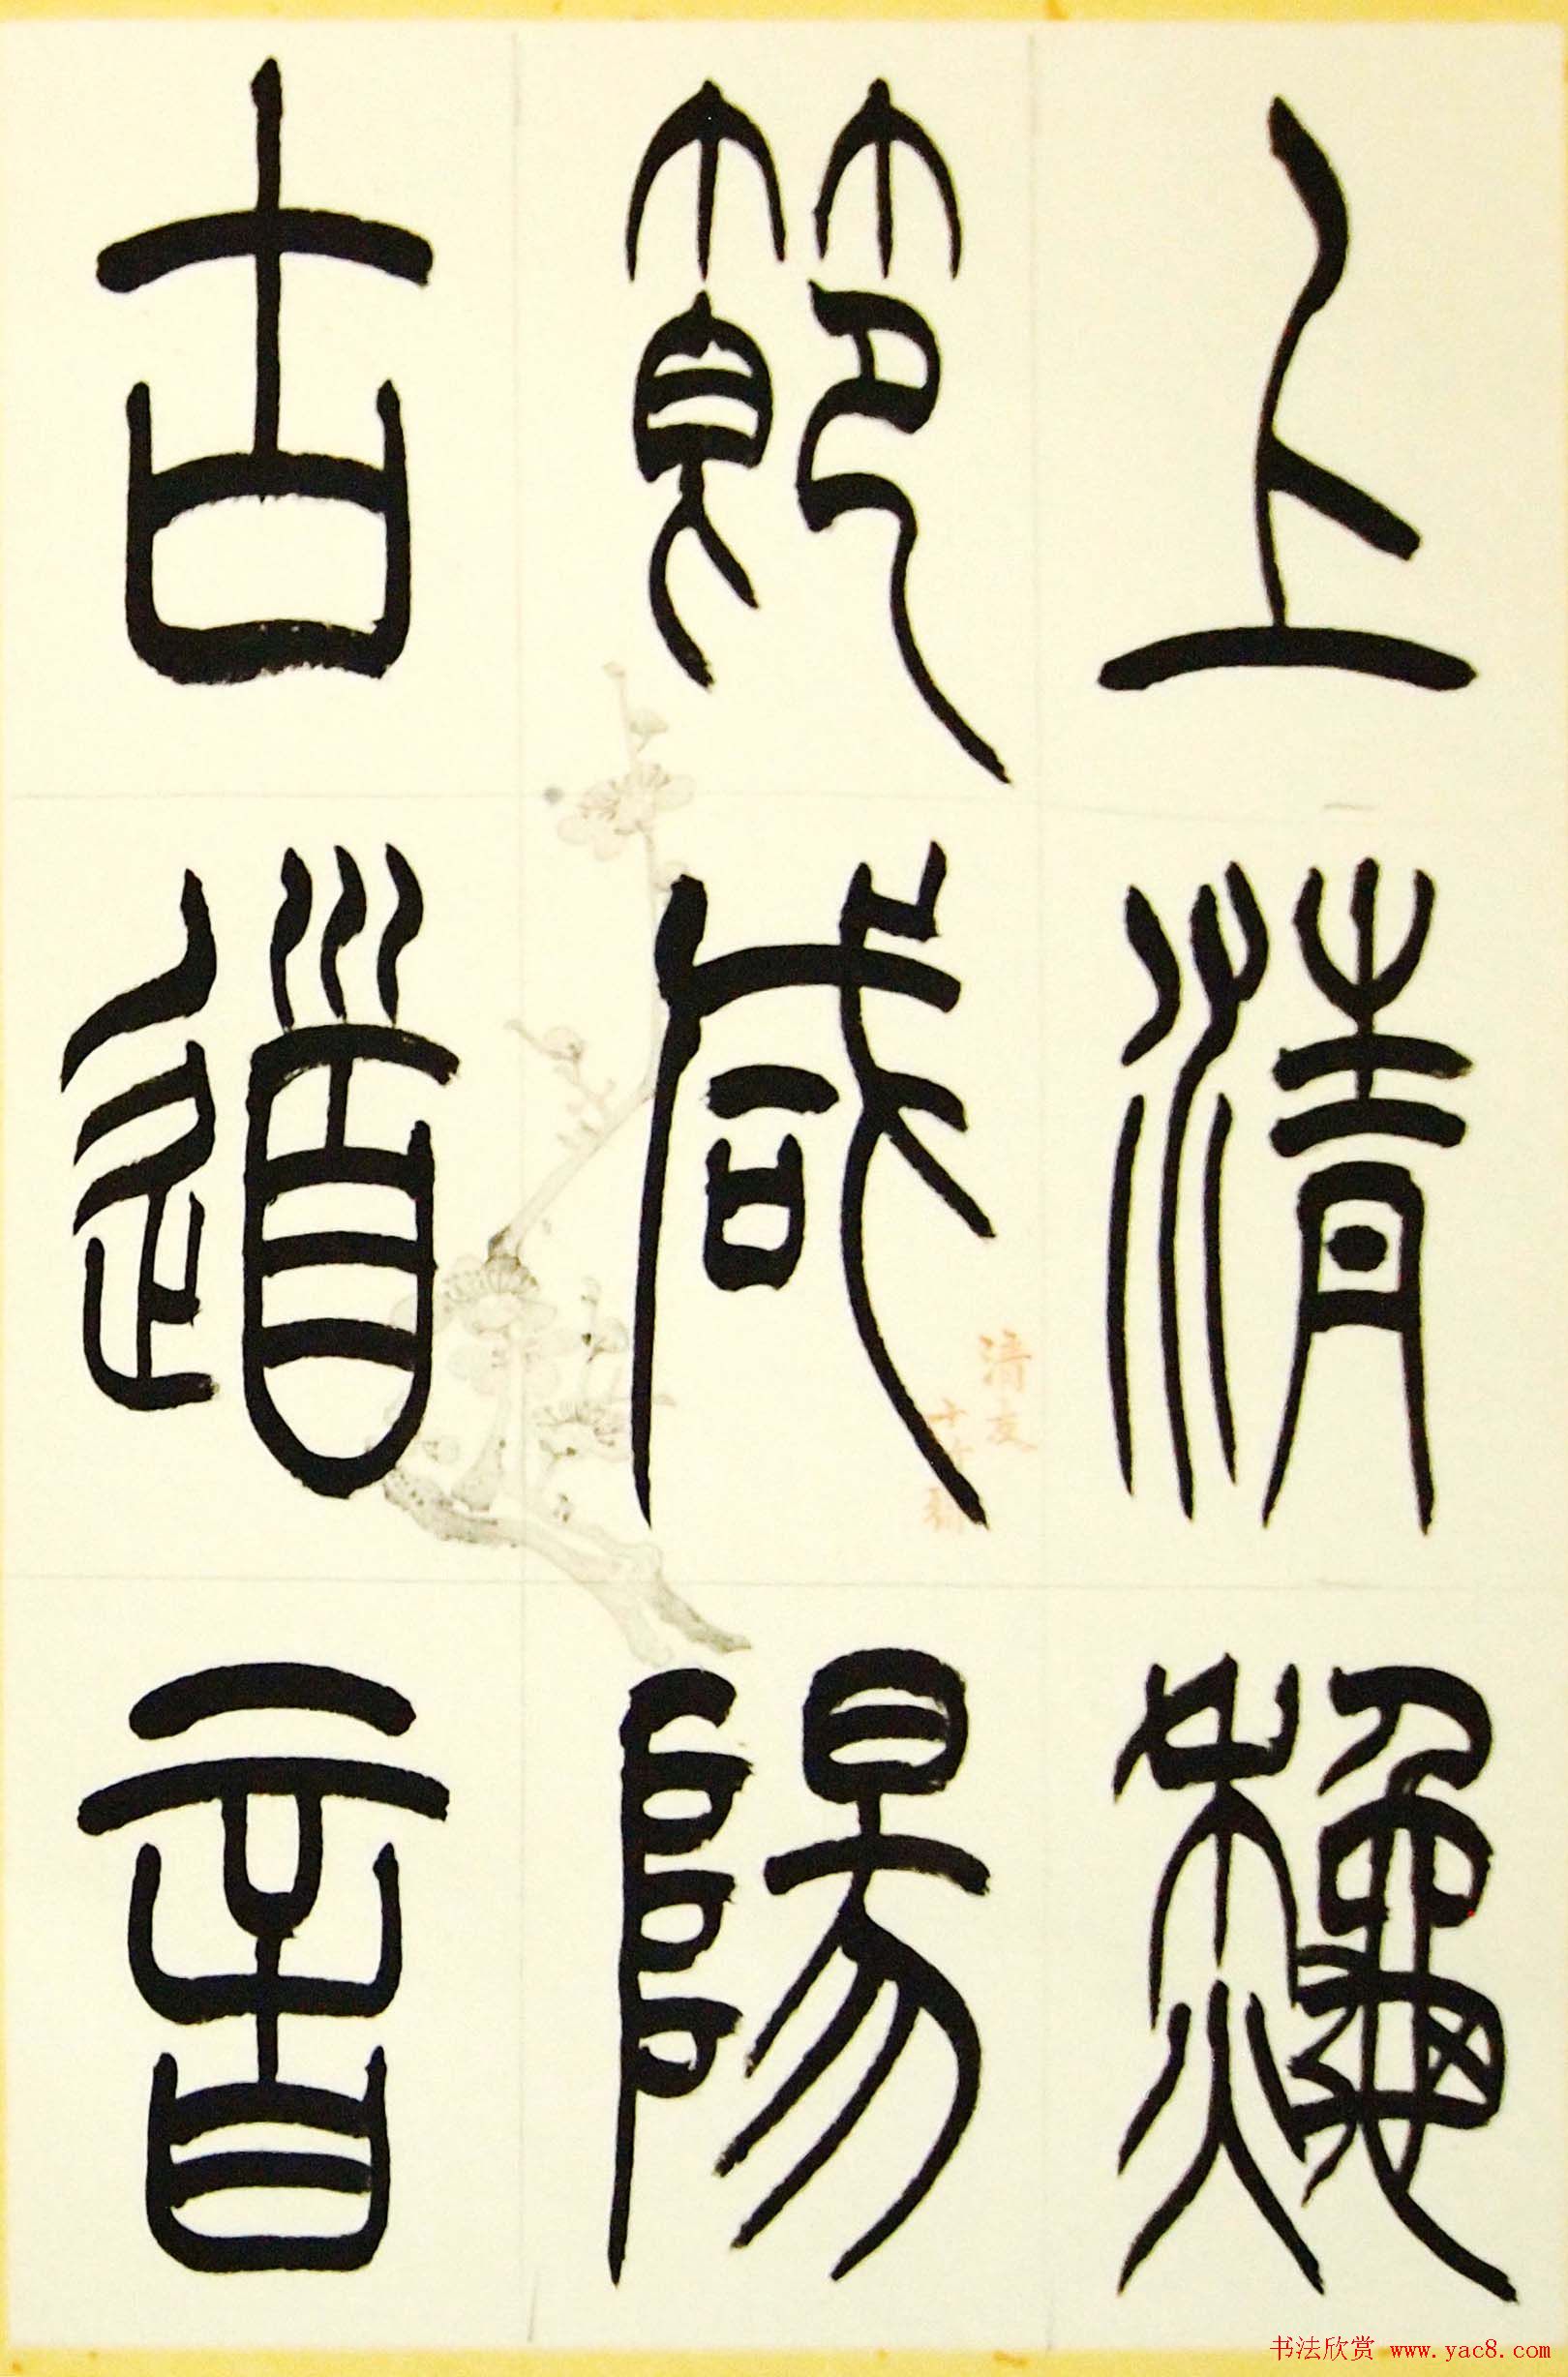 上清秋
節咸陽
古道音
清友
书法欣赏 www.yac8.com